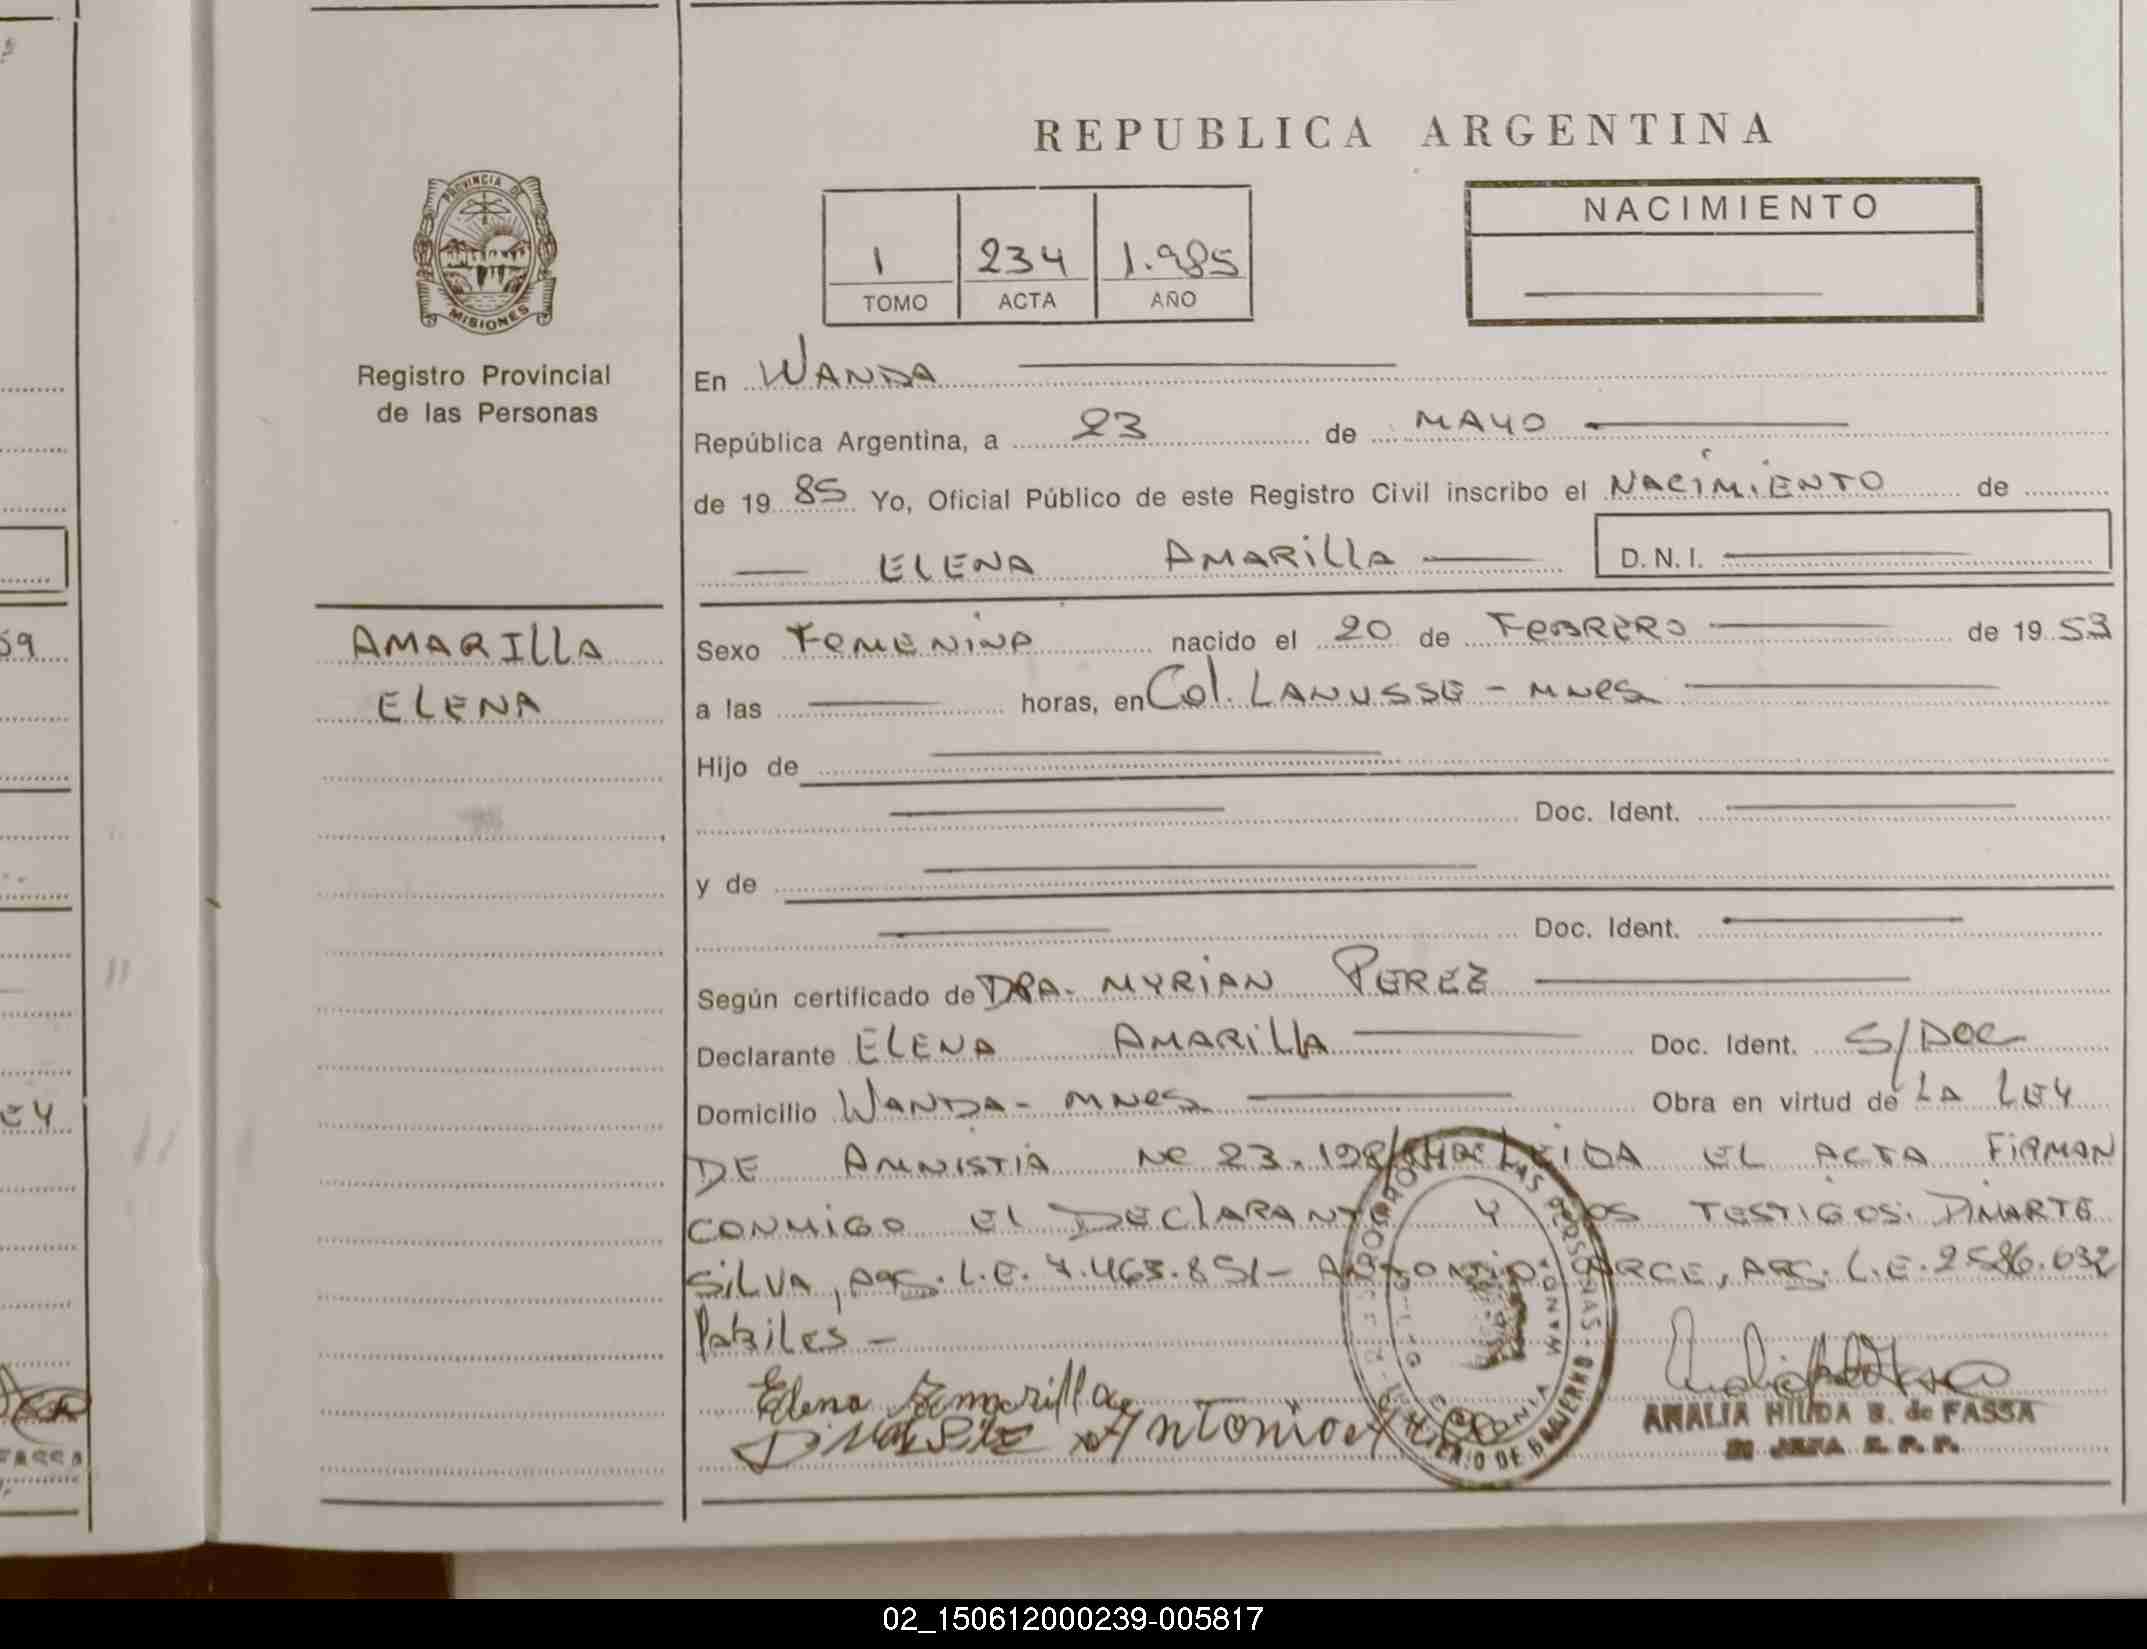 REPUBLICA ARGENTINA
PROVINCIA DE
MISIONES
Registro Provincial
de las Personas
1 234 1.985
TOMO ACTA AÑO
NACIMIENTO
En WANDA
República Argentina, a 23 de MAYO
de 19 85 Yo, Oficial Público de este Registro Civil inscribo el NACIMIENTO de
ELENA AMARILLA D. N. I.
AMARILLA
ELENA
Sexo FEMENINA nacido el 20 de FEBRERO de 19 53
a las horas, en Col. LANUSSE - MNES
Hijo de
Doc. Ident.
y de
Doc. Ident.
Según certificado de DRA- MYRIAN PEREZ
Declarante ELENA AMARILLA Doc. Ident. S/DOC
Domicilio WANDA- MNES Obra en virtud de LA LEY
DE AMNISTIA Nº LEIDA EL ACTA FIRMAN
CONMIGO EL DECLARANTE Y LOS TESTIGOS: DIMARTE
SILVA, ARG. L.E. 7.463.851- ANTONIO ARCE, ARG. L.E. 2586.032
Elena Amarilla
Antonio Arce
ANALIA HILDA B. de FASSA
02_150612000239-005817